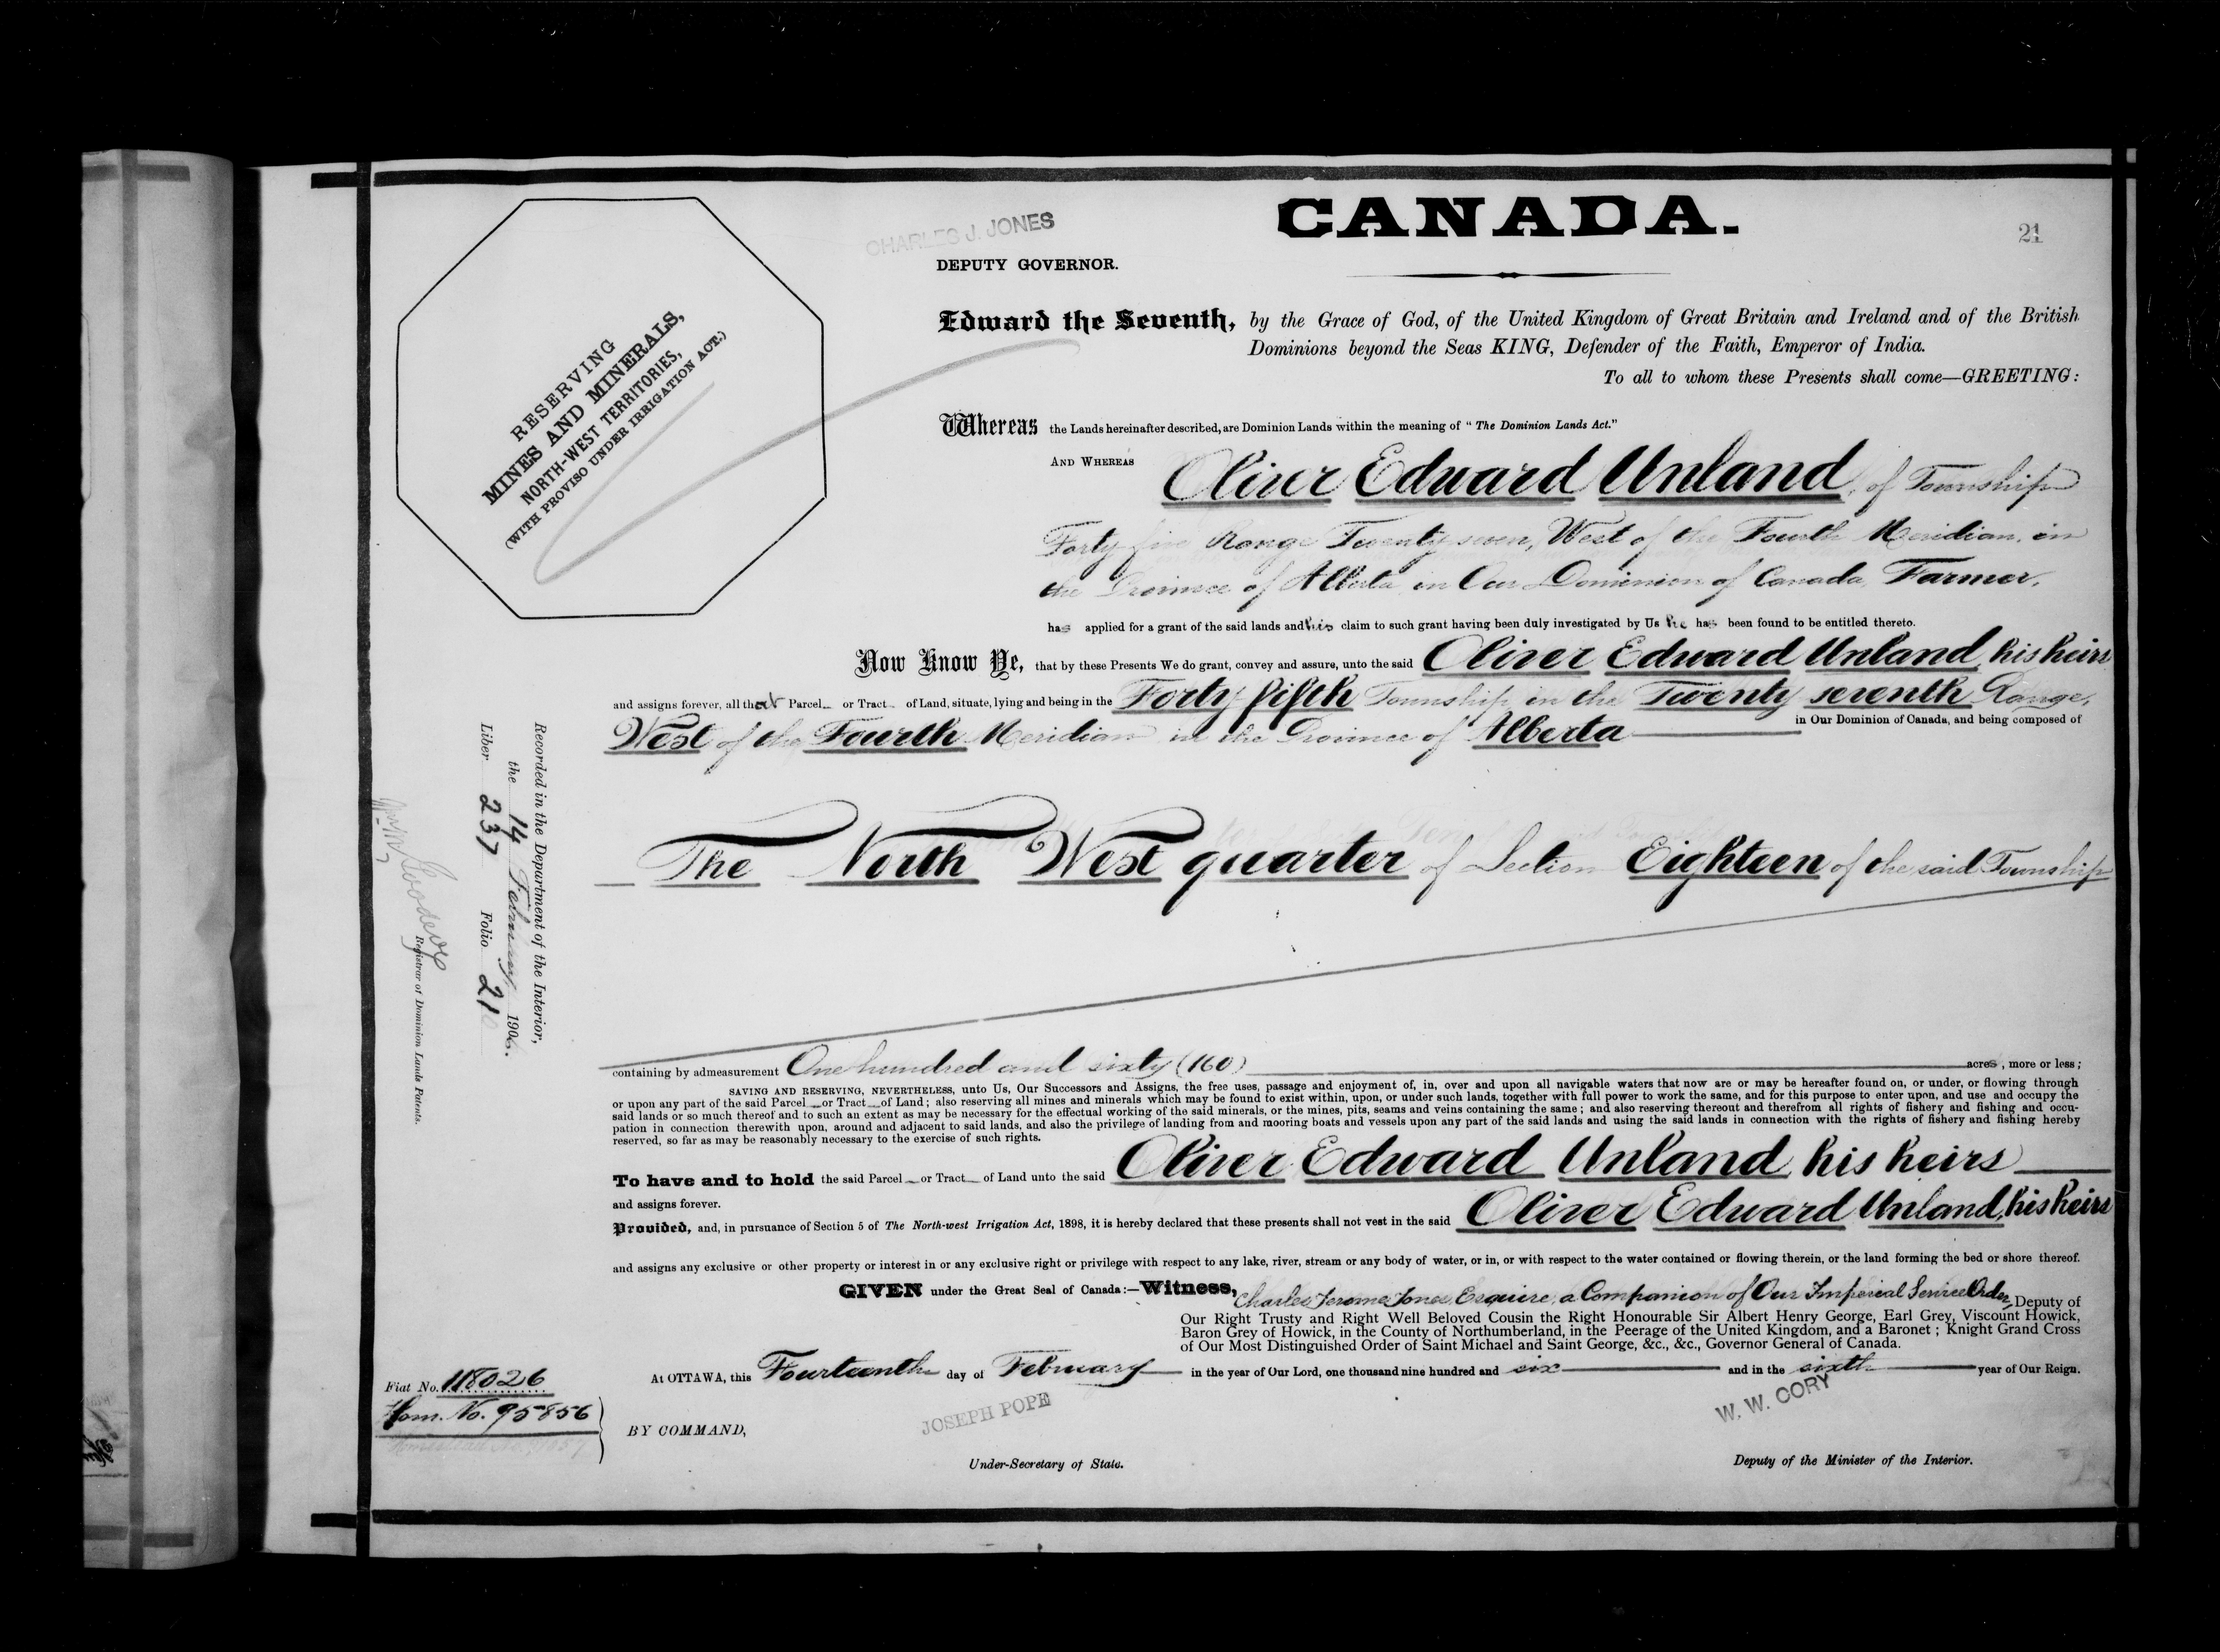 CHARLES J. JONES
CANADA.
21
DEPUTY GOVERNOR.
RESERVING
MINES AND MINERALS,
NORTH-WEST TERRITORIES,
(WITH PROVISO UNDER IRRIGATION ACT.)
Edward the Seventh, by the Grace of God, of the United Kingdom of Great Britain and Ireland and of the British
Dominions beyond the Seas KING, Defender of the Faith, Emperor of India.
To all to whom these Presents shall come—GREETING:
Whereas the Lands hereinafter described, are Dominion Lands within the meaning of "The Dominion Lands Act."
AND WHEREAS Oliver Edward Unland, of Township
Forty five Range Twenty seven, West of the Fourth Meridian, in
the Province of Alberta in Our Dominion of Canada, Farmer,
has applied for a grant of the said lands and his claim to such grant having been duly investigated by Us he has been found to be entitled thereto.
Now Know Ye, that by these Presents We do grant, convey and assure, unto the said Oliver Edward Unland, his heirs
and assigns forever, all that Parcel or Tract of Land, situate, lying and being in the Forty fifth Township in the Twenty seventh Range,
West of the Fourth Meridian in the Province of Alberta in Our Dominion of Canada, and being composed of
The North West quarter of Section Eighteen of the said Township
containing by admeasurement One hundred and sixty (160) acres, more or less;
SAVING AND RESERVING, NEVERTHELESS, unto Us, Our Successors and Assigns, the free uses, passage and enjoyment of, in, over and upon all navigable waters that now are or may be hereafter found on, or under, or flowing through
or upon any part of the said Parcel or Tract of Land; also reserving all mines and minerals which may be found to exist within, upon, or under such lands, together with full power to work the same, and for this purpose to enter upon, and use and occupy the
said lands or so much thereof and to such an extent as may be necessary for the effectual working of the said minerals, or the mines, pits, seams and veins containing the same; and also reserving thereout and therefrom all rights of fishery and fishing and occu-
pation in connection therewith upon, around and adjacent to said lands, and also the privilege of landing from and mooring boats and vessels upon any part of the said lands and using the said lands in connection with the rights of fishery and fishing hereby
reserved, so far as may be reasonably necessary to the exercise of such rights.
To have and to hold the said Parcel or Tract of Land unto the said Oliver Edward Unland, his heirs
and assigns forever.
Provided, and, in pursuance of Section 5 of The North-west Irrigation Act, 1898, it is hereby declared that these presents shall not vest in the said Oliver Edward Unland, his heirs
and assigns any exclusive or other property or interest in or any exclusive right or privilege with respect to any lake, river, stream or any body of water, or in, or with respect to the water contained or flowing therein, or the land forming the bed or shore thereof.
GIVEN under the Great Seal of Canada:—Witness, Charles Jerome Jones, Esquire, a Companion of Our Imperial Service Order, Deputy of
Our Right Trusty and Right Well Beloved Cousin the Right Honourable Sir Albert Henry George, Earl Grey, Viscount Howick,
Baron Grey of Howick, in the County of Northumberland, in the Peerage of the United Kingdom, and a Baronet; Knight Grand Cross
of Our Most Distinguished Order of Saint Michael and Saint George, &c., &c., Governor General of Canada.
At OTTAWA, this Fourteenth day of February in the year of Our Lord, one thousand nine hundred and six and in the sixth year of Our Reign.
JOSEPH POPE
W. W. CORY
BY COMMAND,
Under-Secretary of State.
Deputy of the Minister of the Interior.
Fiat No. 118026
Hom. No. 95856
Recorded in the Department of the Interior,
the 14 February 1906.
Liber 237 Folio 21
Registrar of Dominion Lands Patents.